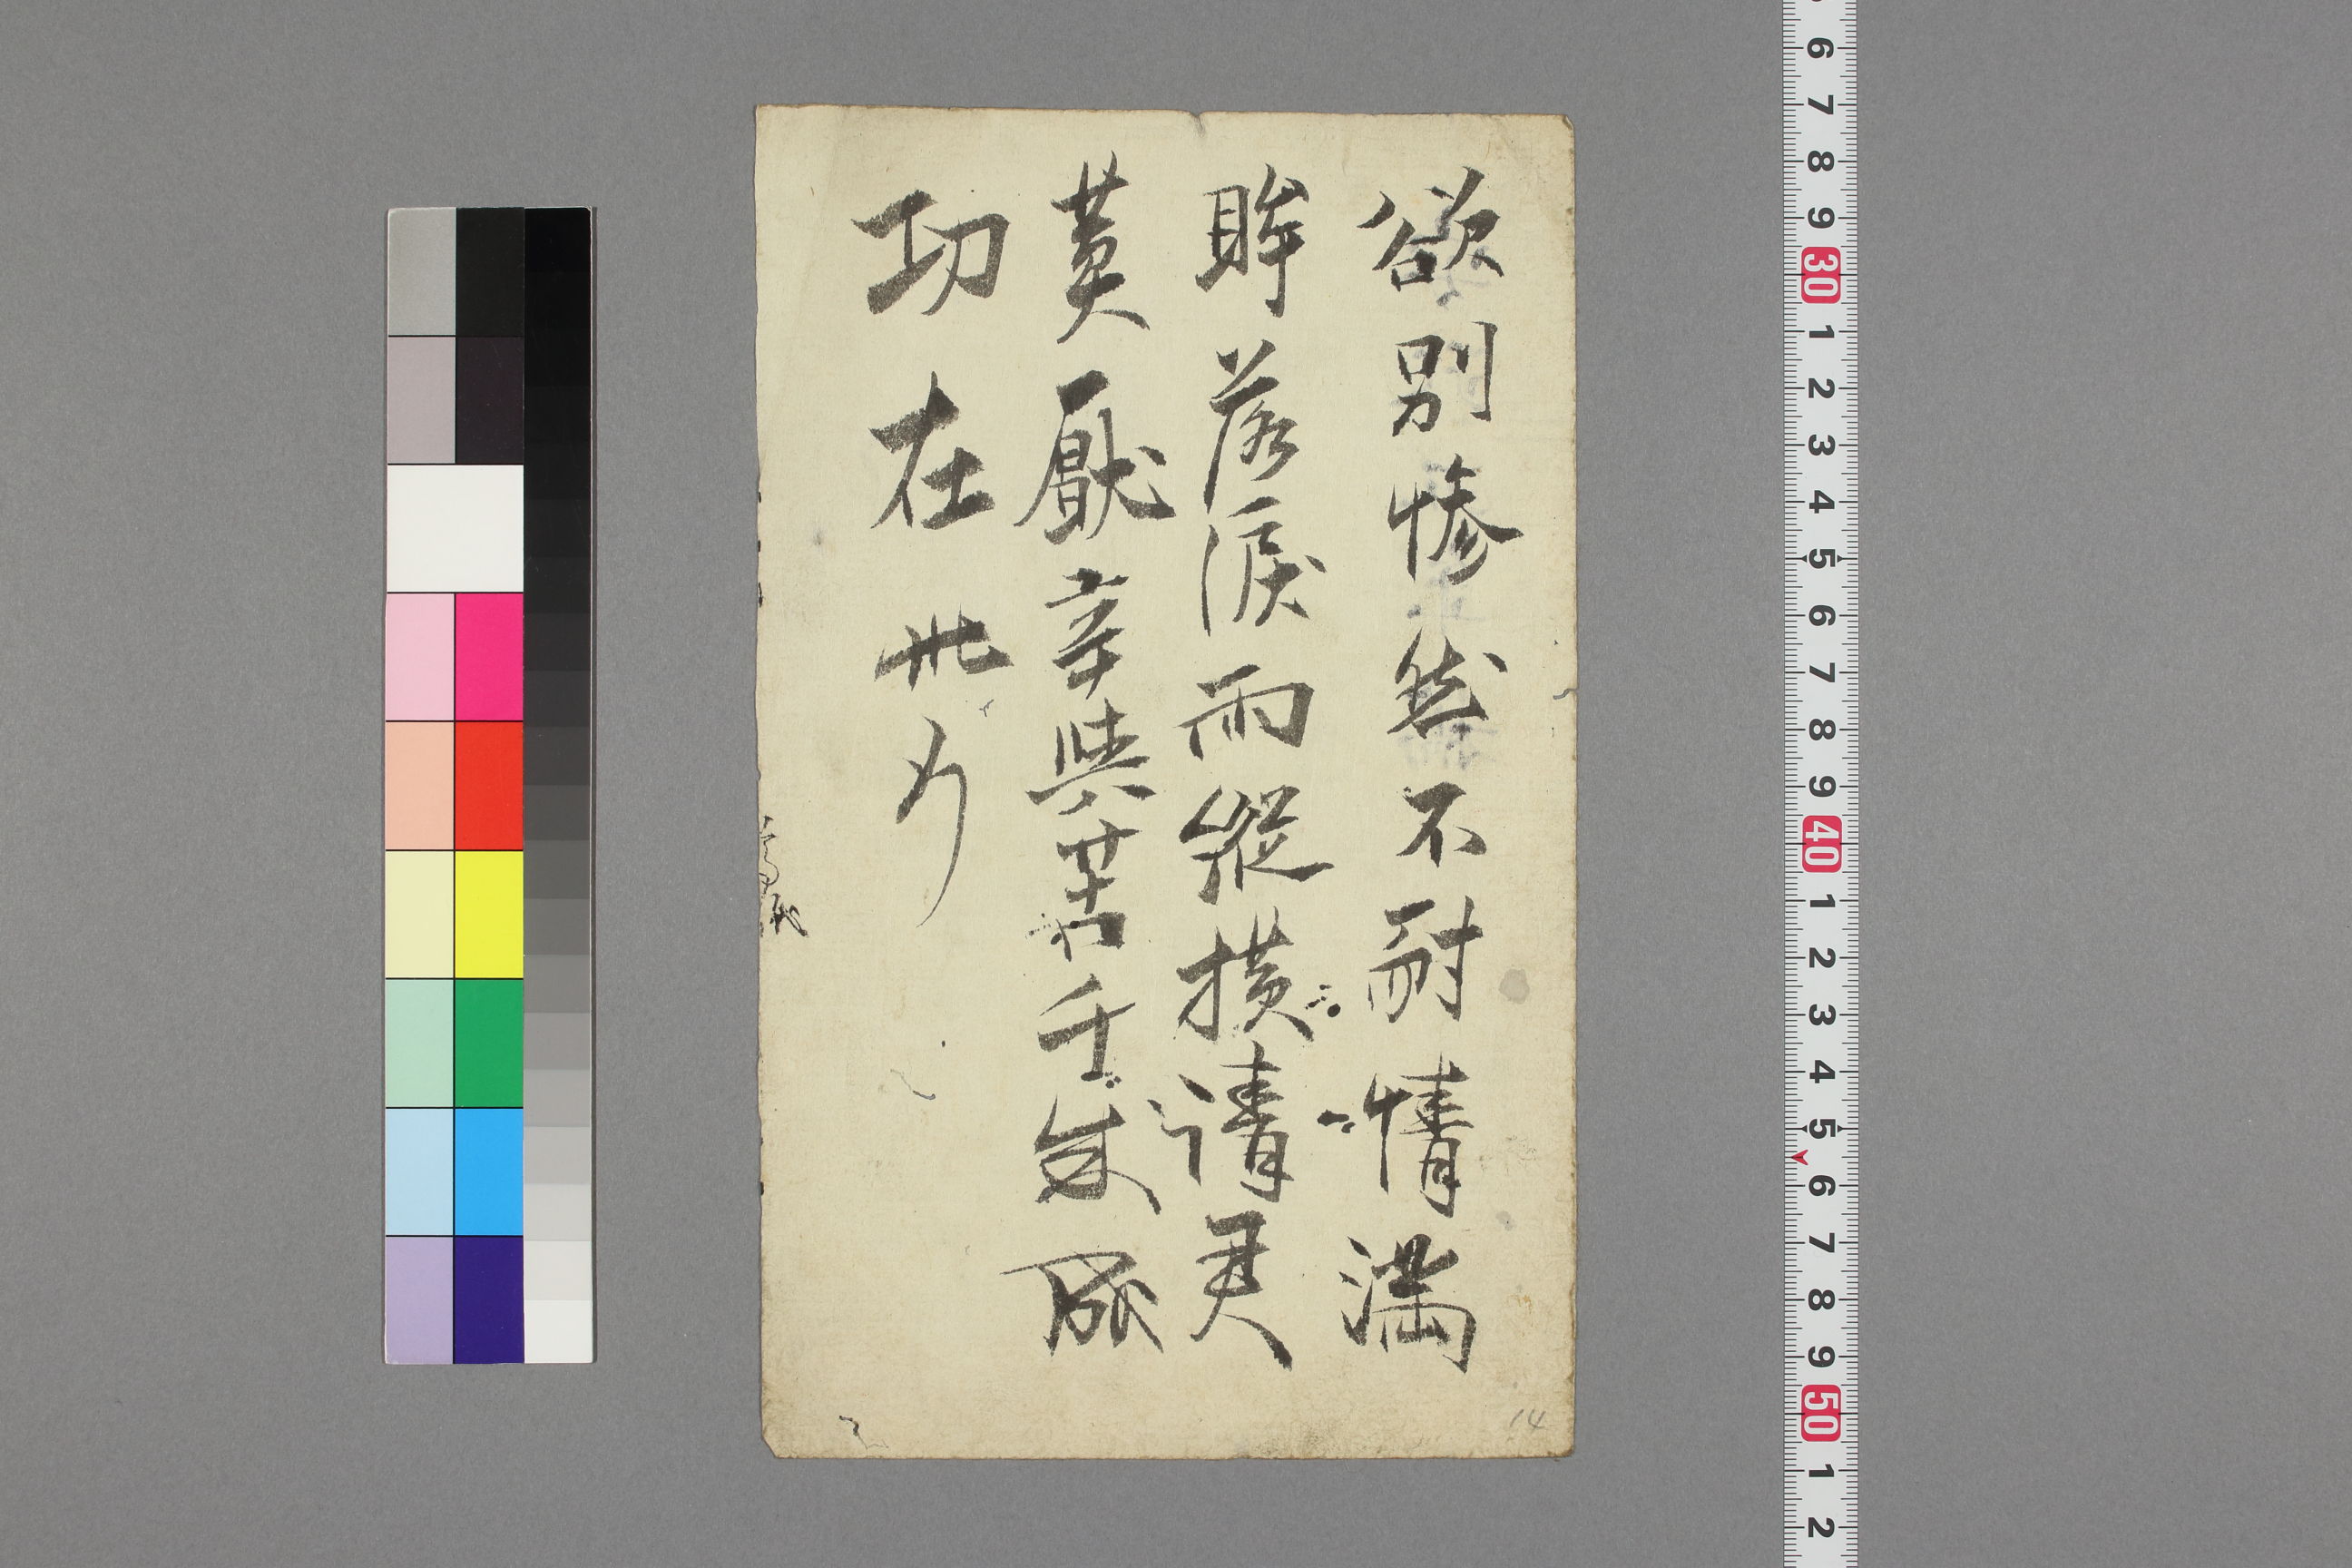 欲別惨然不耐情满
眸落淚雨縱横請君
莫厭辛與苦千載
功在此行
14
6 7 8 9 30 1 2 3 4 5 6 7 8 9 40 1 2 3 4 5 6 7 8 9 50 1 2